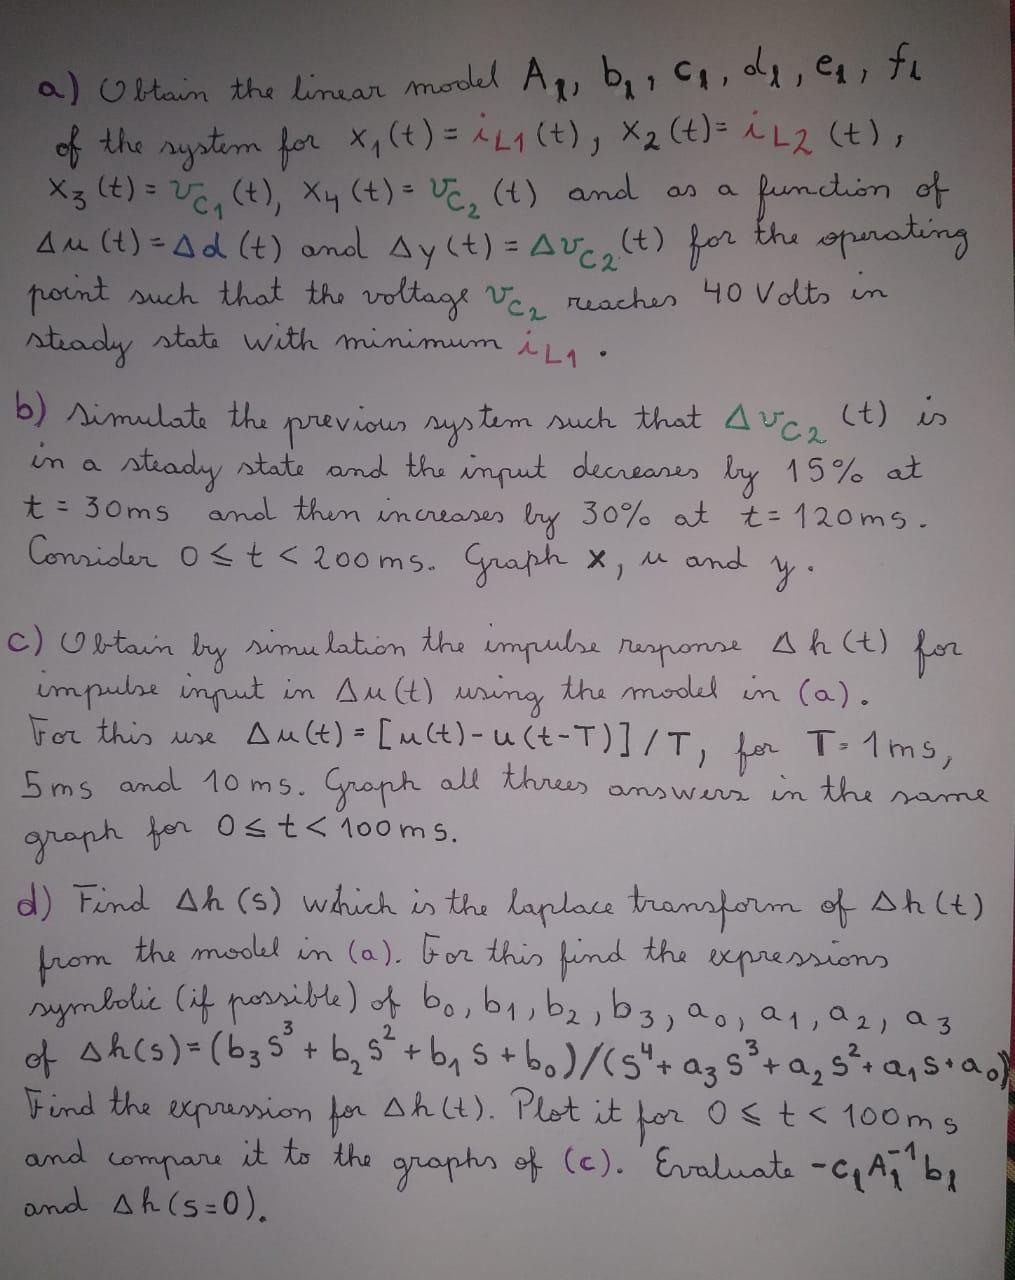 a) Obtain the linear model A₁, b₁, c₁, d₁, e₁, f₁
of the system for x₁(t) = i_L1(t), x₂(t) = i_L2(t),
x₃(t) = v_C₁(t), x₄(t) = v_C₂(t) and as a function of
Δu(t) = Δd(t) and Δy(t) = Δv_C2(t) for the operating
point such that the voltage v_C₂ reaches 40 Volts in
steady state with minimum i_L1.
b) simulate the previous system such that Δv_C2(t) is
in a steady state and the input decreases by 15% at
t = 30ms and then increases by 30% at t = 120ms.
Consider 0 ≤ t < 200ms. Graph x, u and y.
c) Obtain by simulation the impulse response Δh(t) for
impulse input in Δu(t) using the model in (a).
For this use Δu(t) = [u(t) - u(t-T)]/T, for T = 1ms,
5ms and 10ms. Graph all threes answers in the same
graph for 0 ≤ t < 100ms.
d) Find Δh(s) which is the laplace transform of Δh(t)
from the model in (a). For this find the expressions
symbolic (if possible) of b₀, b₁, b₂, b₃, a₀, a₁, a₂, a₃
of Δh(s) = (b₃s³ + b₂s² + b₁s + b₀)/(s⁴ + a₃s³ + a₂s² + a₁s + a₀)
Find the expression for Δh(t). Plot it for 0 ≤ t < 100ms
and compare it to the graphs of (c). Evaluate -c₁A₁⁻¹b₁
and Δh(s=0).